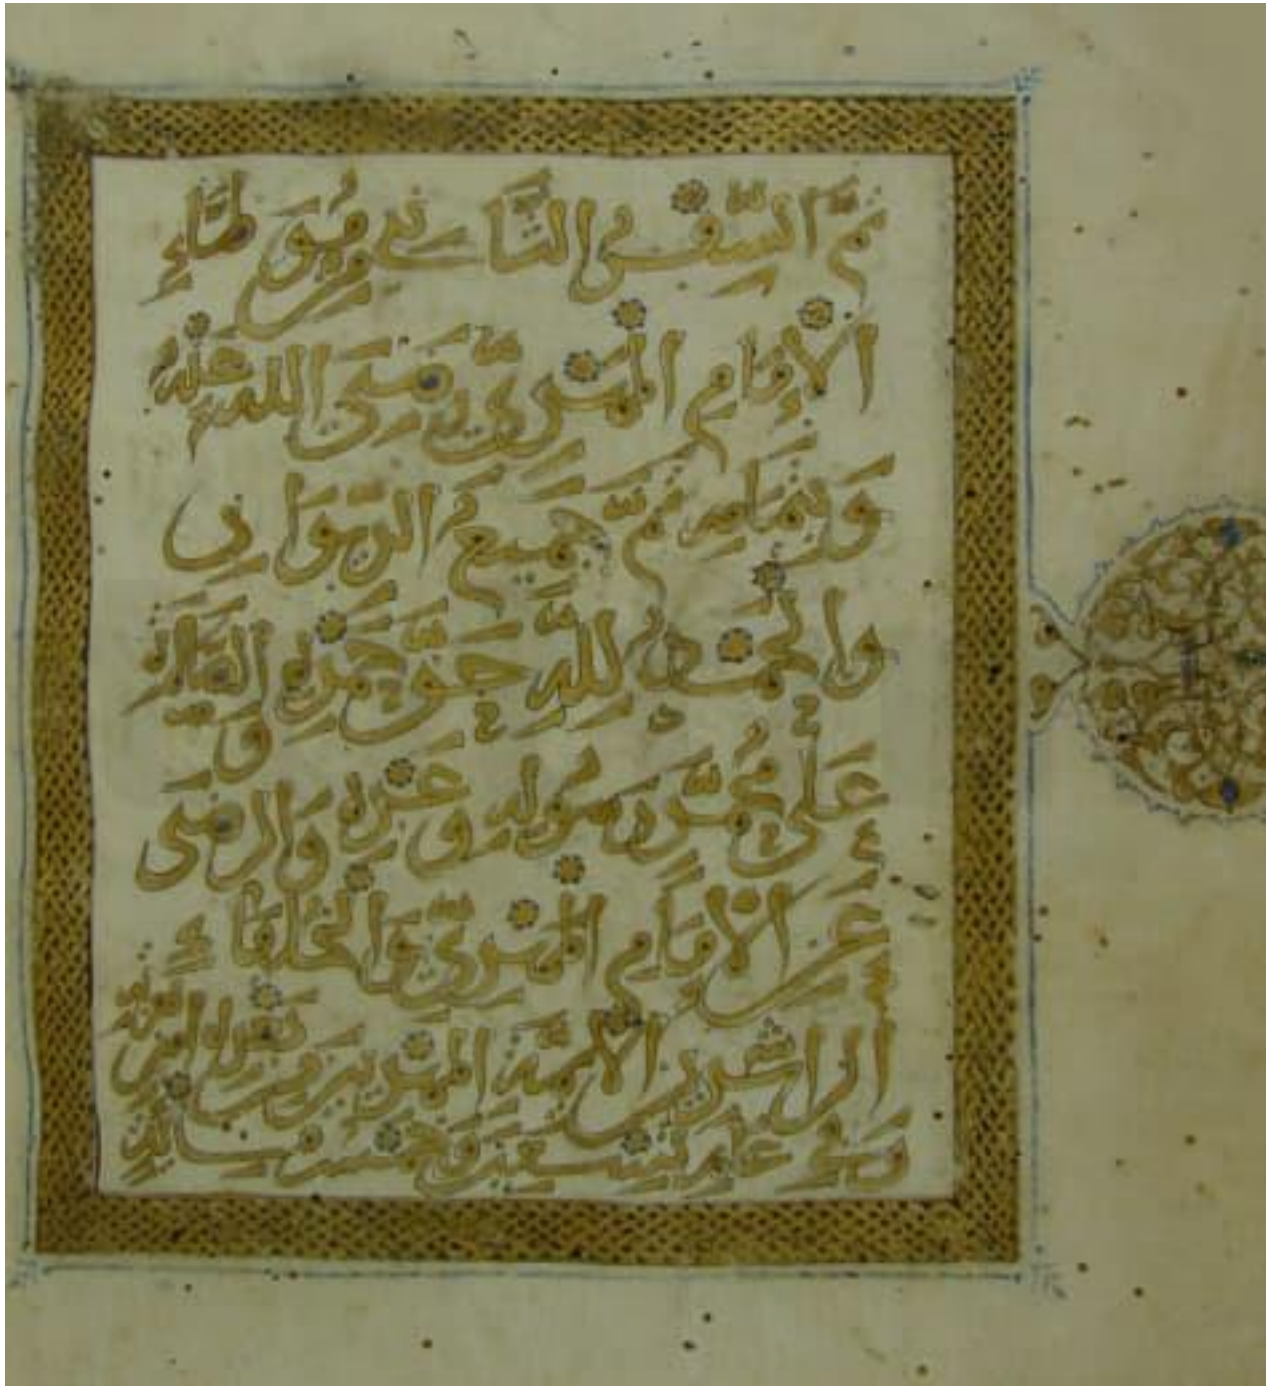 تم السفر الثاني من موطإ
الإمام المهدي رضي الله عنه
وبتمامه تم جميع الديوان
والحمد لله حق حمده والصلاة
على محمد رسوله وعبده والرضى
عن الإمام المهدي والخلفاء
الراشدين الأئمة المهديين من بعده
وفي عام تسعين وخمس مائة